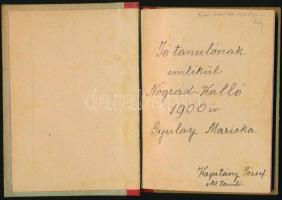 Jó tanulónak
emlékül
Nógrád-Kálló
1900 év
Gyulay Mariska
Kapitány József
okl. tanító